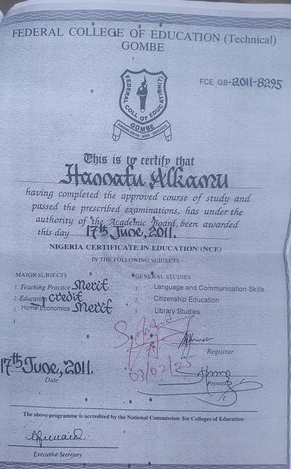 FEDERAL COLLEGE OF EDUCATION (Technical)
GOMBE
FCE GB-2011-8295
FEDERAL COLL. OF EDUCATION (T)
GOMBE
This is to certify that
having completed the approved course of study and
passed the prescribed examinations, has under the
authority of the Academic Board, been awarded
this day 17th June, 2011.
NIGERIA CERTIFICATE IN EDUCATION (NCE)
IN THE FOLLOWING SUBJECTS
MAJOR SUBJECTS
GENERAL STUDIES
1. Teaching Practice Merit
1. Language and Communication Skills
2. Education Credit
2. Citizenship Education
3. Home Economics Merit
3. Library Studies
Registrar
03/02/25
17th June, 2011.
Date
Provost
The above programme is accredited by the National Commission for Colleges of Education
Executive Secretary